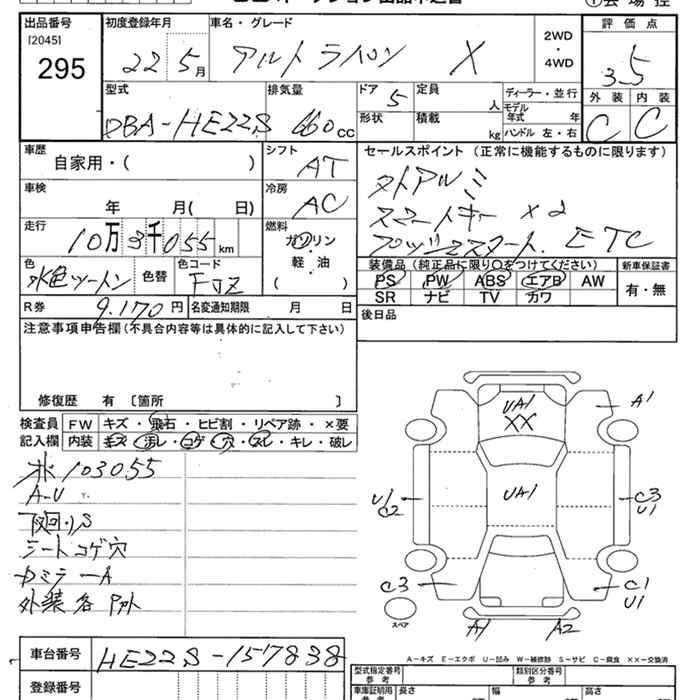 出品番号 初度登録年月 車名・グレード 2WD・4WD 評価点
[2045]
295 22年5月 アルトラパン X 3.5
型式 排気量 ドア 定員 ディーラー・並行 外装 内装
DBA-HE22S 660cc 5 人 モデル年式 年 C C
形状 積載 kg ハンドル 左・右
車歴 自家用・( ) シフト AT セールスポイント (正常に機能するものに限ります)
車検 年 月( 日) 冷房 AC
スマートキー ×2
走行 10万3千055km 燃料 ガソリン 軽・油 ( )
プッシュスタート. ETC
色 水色ツートン 色替 色コード FJZ
装備品 (純正品に限り○をつけてください) 新車保証書
PS PW ABS エアB AW 有・無
SR ナビ TV カワ
R券 9.170円 名変通知期限 月 日 後日品
注意事項申告欄(不具合内容等は具体的に記入して下さい)
修復歴 有 〔箇所 〕
検査員記入欄 FW キズ・飛石・ヒビ割・リペア跡・×要
内装 キズ・汚レ・コゲ・穴・スレ・キレ・破レ
103055
A-U
下廻りS
シートコゲ穴
外装各
UA1
XX
A1
UA1
U1
C2
C3
U1
C3
C1
U1
スペア
A1 A2
A-キズ E-エクボ U-凹み W-補修跡 S-サビ C-腐食 XX-交換済
車台番号 HE22S-157838
登録番号
型式指定番号 参考 類別区分番号 参考
車庫証明用 参考 長さ 幅 高さ